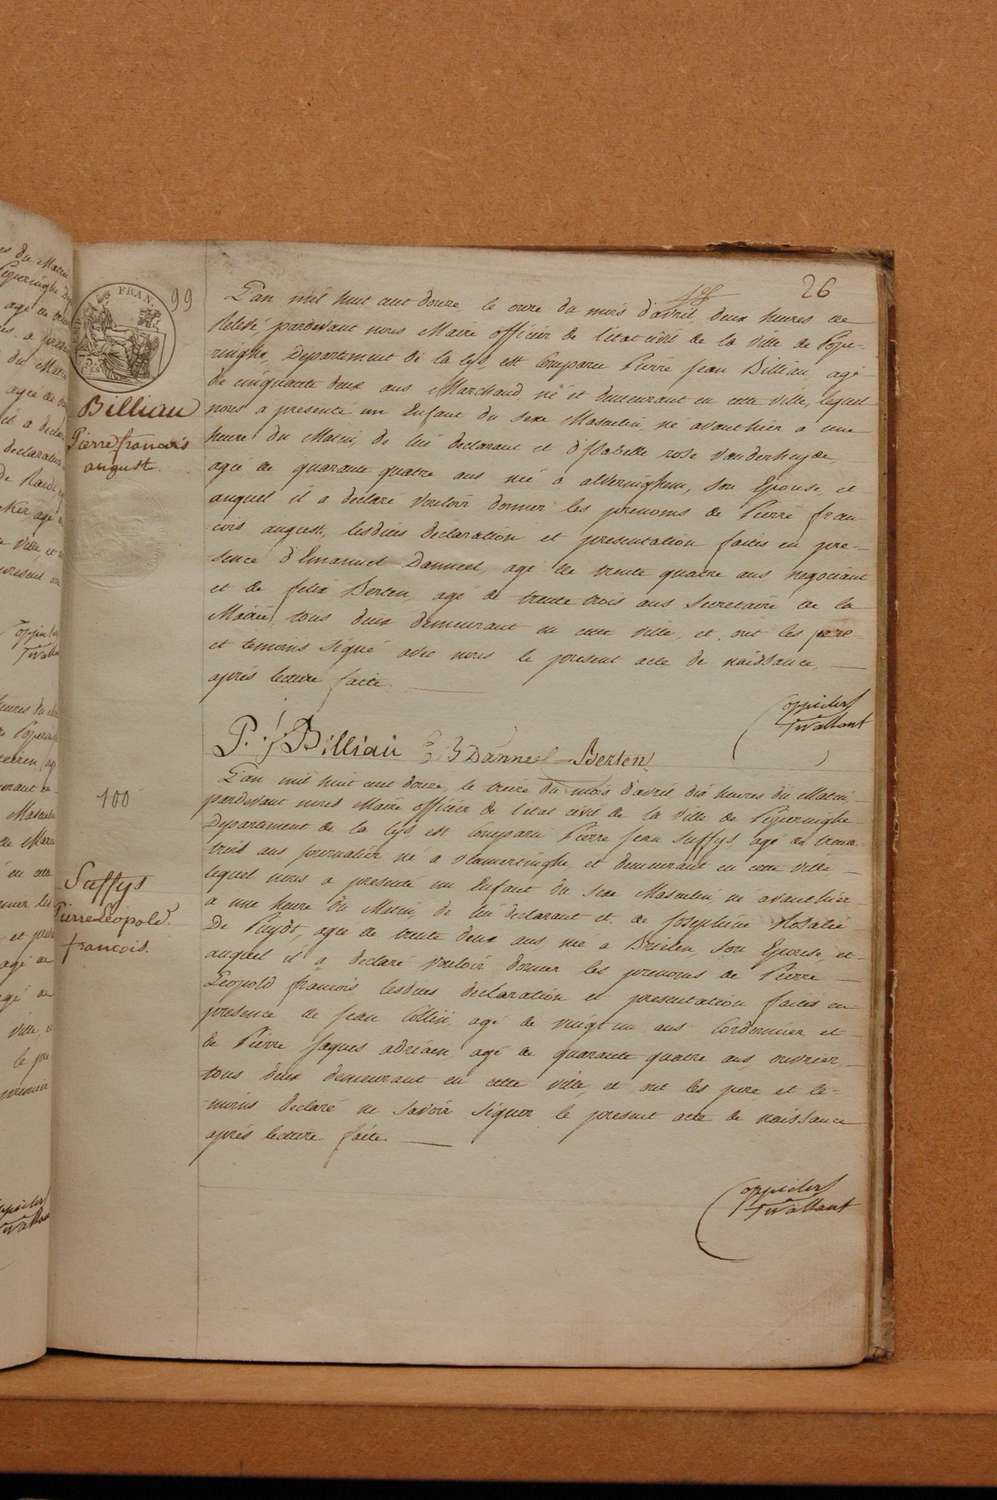 26
99
FRAN.
Billiau
Pierre françois
auguste.
L'an mil huit cent douze le onze du mois d'avril deux heures de
relevé pardevant nous Maire officier de l'etat civil de la ville de Pope-
ringhe, Departement de la Lys, est Comparu Pierre Jean Billiau, agé
de cinquante deux ans Marchand né et demeurant en cette ville, lequel
nous a presenté un Enfant du sexe Masculin, né avanthier à une
heure du Matin, de lui declarant et d'Isabelle rose Vanderheyde,
agée de quarante quatre ans née à alveringhem, son Epouse, et
auquel il a declaré vouloir donner les prenoms de Pierre fran-
cois auguste, lesdites declaration et presentation faites en pre-
sence d'Emanuel Danneel, agé de trente quatre ans negociant
et de felix Berten, agé de trente trois ans Secretaire de la
Mairie, tous deux demeurant en cette ville, et ont les pere
et temoins signé avec nous le present acte de naissance,
après lecture faite.
P. J. Billiau E Danneel Berten
100
Suffys
Pierre Léopold
francois.
L'an mil huit cent douze, le treize du mois d'avril dix heures du Matin,
pardevant nous Maire officier de l'etat civil de la ville de Poperinghe
Departement de la Lys est Comparu Pierre Jean Suffys, agé de trente
trois ans journalier né à vlamertinghe, et demeurant en cette ville
lequel nous a presenté un Enfant du sexe Masculin né avanthier
à une heure du Matin, de lui declarant et de Josephine Rosalie
De Puydt, agée de trente deux ans née à Brielen, son Epouse, et
auquel il a declaré vouloir donner les prenoms de Pierre
Léopold françois lesdites declaration et presentation faites en
presence de Jean Collin, agé de vingt un ans Cordonnier et
de Pierre Jaques adriaen agé de quarante quatre ans ouvrier
tous deux demeurant en cette ville, et ont les pere et te-
moins declaré ne savoir signer le present acte de naissance
après lecture faite.